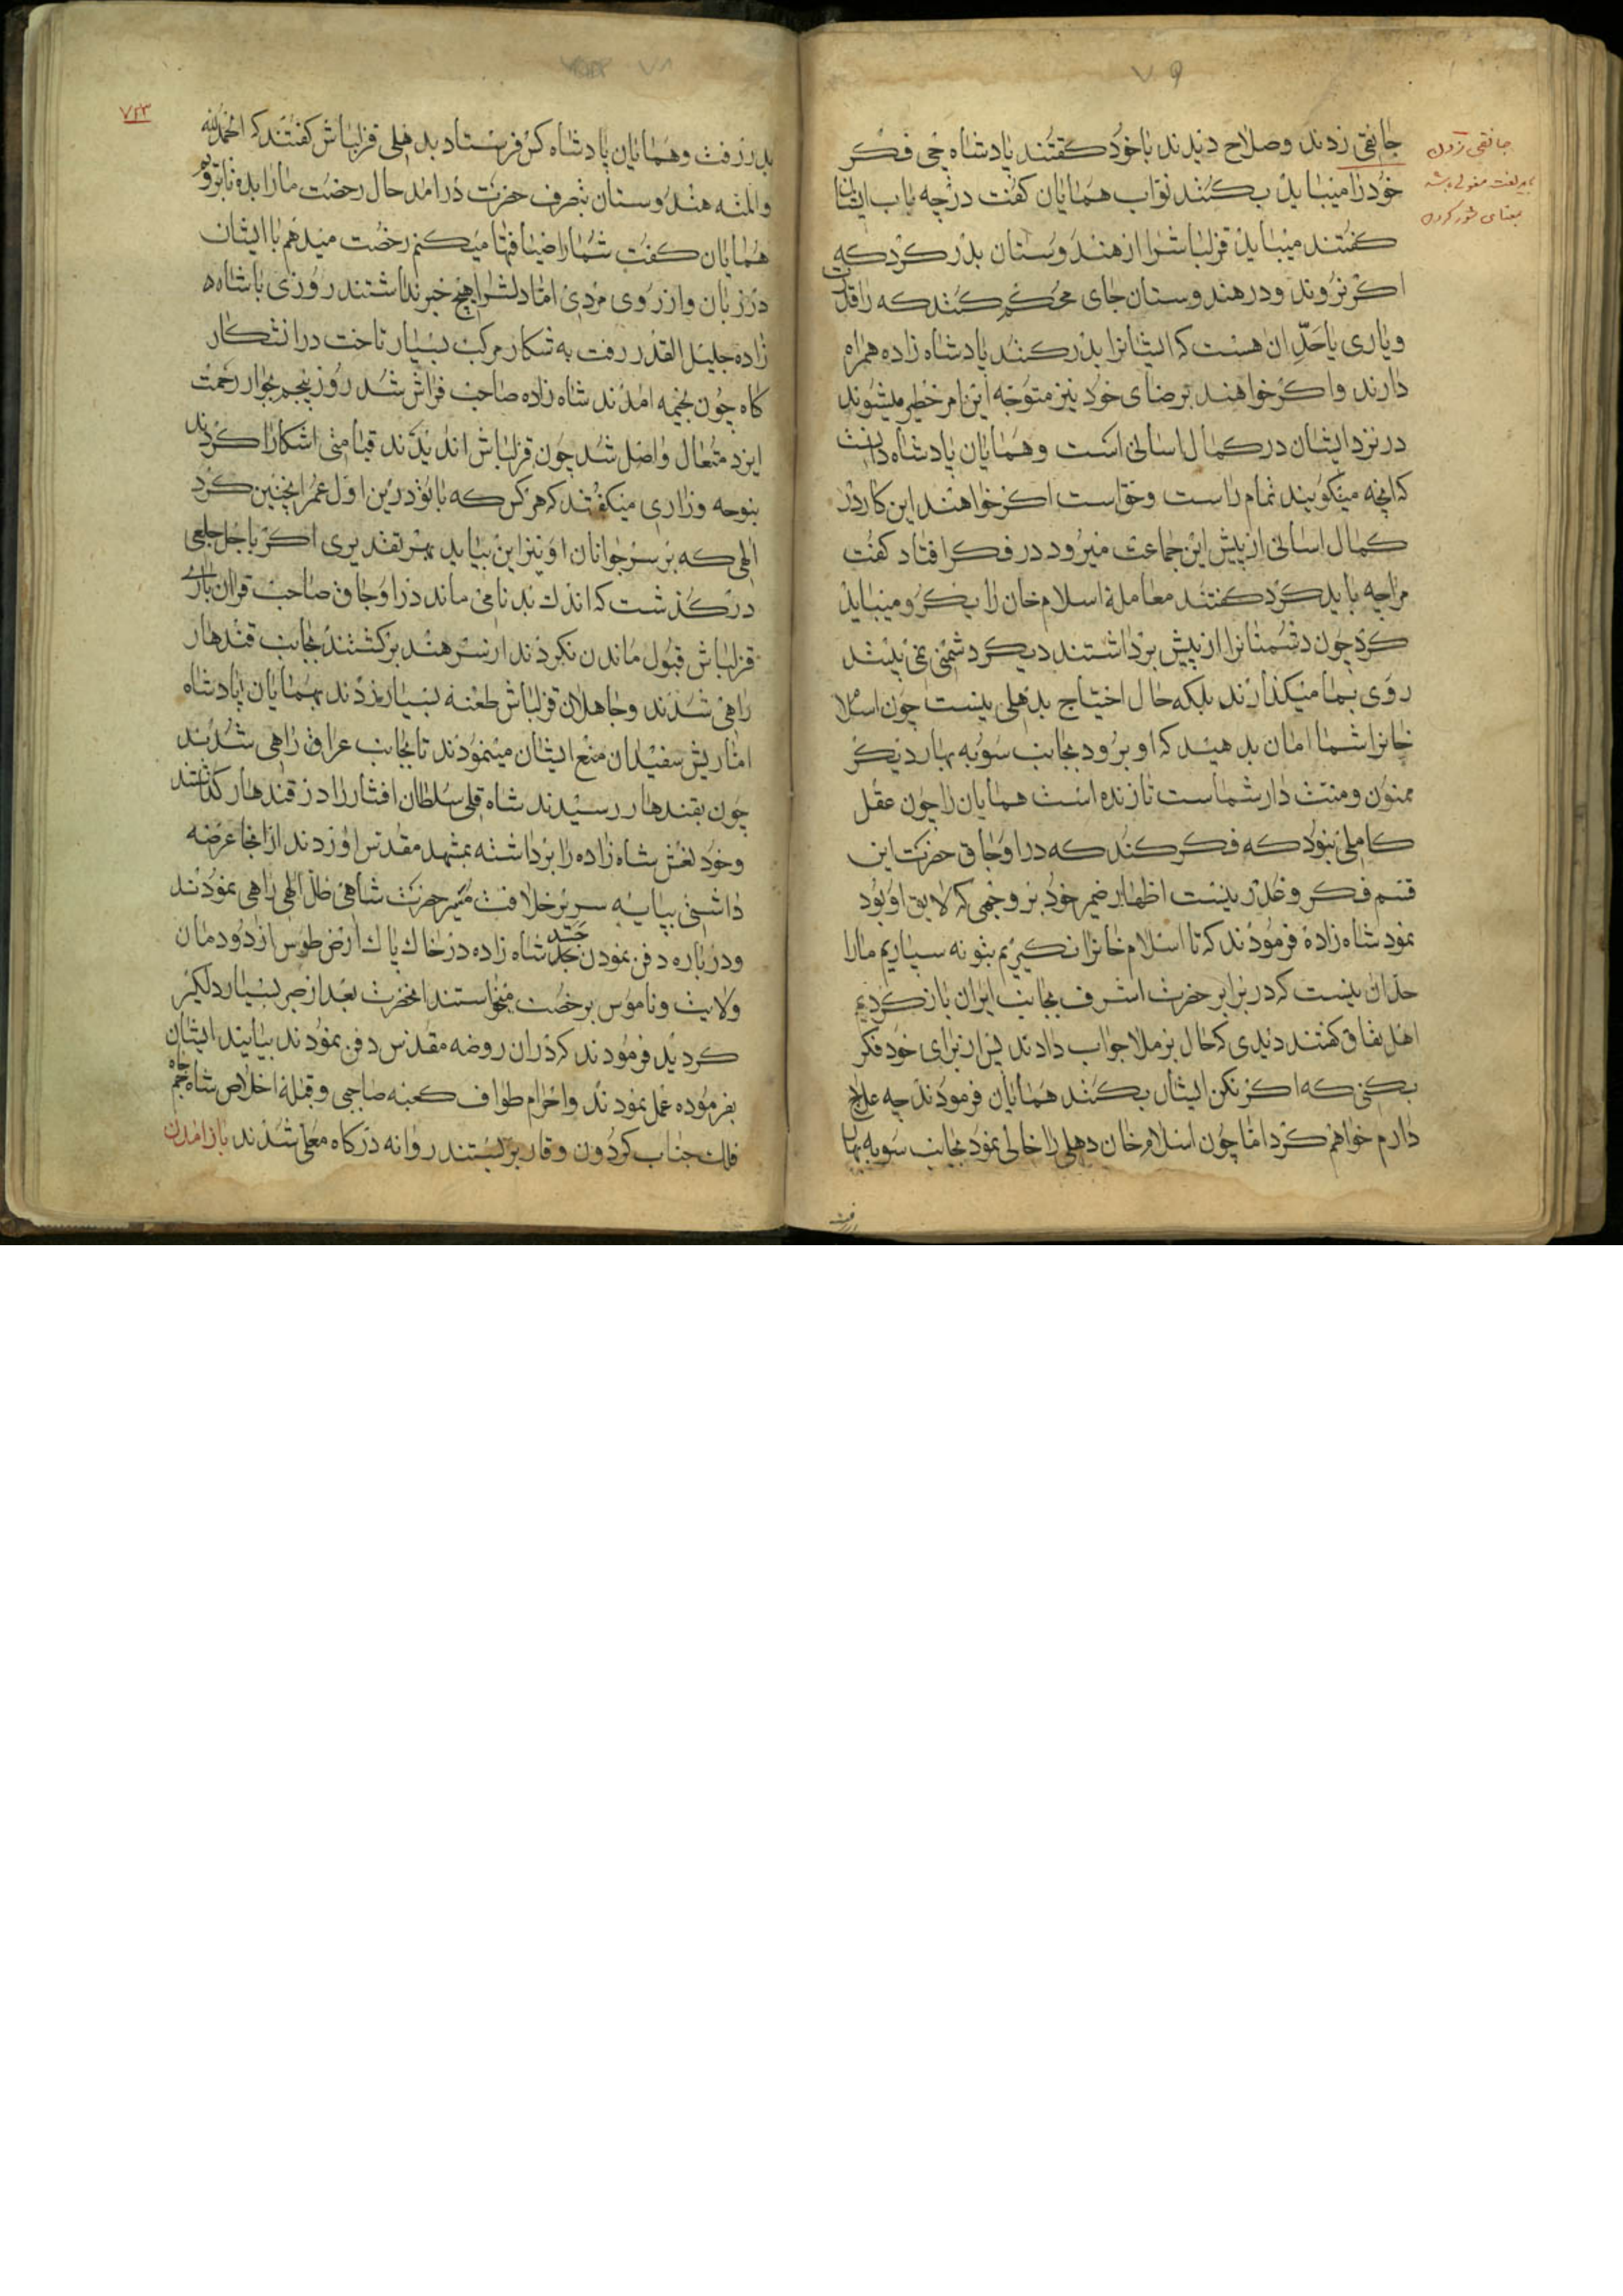 ۷۹
جانقی زدند وصلاح دیدند باخود کفتند پادشاه چی فکر
خودرا میباید بکنند نواب همایان کفت درچه باب ایشان
کفتند میباید قزلباشرا از هندوستان بدر کرد که
اکر نروند ودر هندوستان جای محکم کنند که راقدرت
ویاری یا حد ان هست که ایشانرا بدر کنند پادشاه زاده همراه
دارند واکر خواهند برضای خود نیز متوجه این امر خطیر میشوند
در نزد ایشان درکمال اسانی است وهمایان پادشاه دانست
که انچه میکویند تمام راست وحق است اکر خواهند این کار در
کمال اسانی از پیش این جماعت میرود در فکر افتاد کفت
مرا چه باید کرد کفتند معاملهٔ اسلام خان را بکرو میباید
کرد چون دشمنانرا از پیش برداشتند دیکر دشمنی نمی بیند
روی بما میکذارند بلکه حال احتیاج بدهلی نیست چون اسلام
خانرا شما امان بدهید که او برود بجانب سوبه بهار دیکر
ممنون ومنت دار شماست تا زنده است همایان را چون عقل
کاملی نبود که فکر کند که در اوجاق حضرت این
قسم فکر وغدر نیست اظهار ضمیر خود بر وجهی که لایق او بود
نمود شاه زاده فرمودند که تا اسلام خانرا نکیریم بتو نه سپاریم مارا
حد ان نیست که در برابر حضرت اشرف بجانب ایران باز کردیم
اهل نفاق کفتند دیدی که حال برملا جواب دادند پس از برای خود فکر
بکنی که اکر نکنی ایشان بکنند همایان فرمودند چه علاج
دارم خواهم کرد اما چون اسلام خان دهلی را خالی نمود بجانب سوبه بهار
جانقی زدن
بلغت مغولی باشد
بمعنای شور کردن
۷۸
۷۲۳
بدر رفت وهمایان پادشاه کس فرستاد بدهلی قزلباش کفتند که الحمدلله
والمنه هندوستان بتصرف حضرت درامد حال رخصت مارا بده تا برویم
همایان کفت شمارا ضیافتها میکنم رخصت میدهم با ایشان
در زبان واز روی مردی اما دلشرا هیچ خبر نداشتند روزی با شاه
زاده جلیل القدر رفت به شکار مرکب بسیار تاخت در ان شکار
کاه چون بخیمه امدند شاه زاده صاحب فراش شد روز پنجم بجوار رحمت
ایزد متعال واصل شد چون قزلباش اندیدند قیامتی اشکارا کردند
بنوحه وزاری میکفتند که هرکس که با تو درین اول عمر اینچنین کرد
الهی که بر سر جوانان او نیز این بیاید بهر تقدیری اکر باجل طبعی
درکذشت که اندک بدنامی ماند در اوجاق صاحب قران باری
قزلباش قبول ماندن نکردند از سر هند برکشتند بجانب قندهار
راهی شدند وجاهلان قزلباش طعنه بسیار زدند بهمایان پادشاه
اما ریش سفیدان منع ایشان مینمودند تا بجانب عراق راهی شدند
چون بقندهار رسیدند شاه قلی سلطان افشار را در قندهار کذاشتند
وخود نعش شاه زاده را برداشته بمشهد مقدس اوردند از انجا عرضه
داشتی بپایه سریر خلافت مصیر حضرت شاهی ظل الهی راهی نمودند
ودرباره دفن نمودن جسد شاه زاده در خاک پاک ارض طوس از دودمان
ولایت وناموس برخصت میخواستند انحضرت بعد از صبر بسیار دلکیر
کردید فرمودند که در ان روضه مقدس دفن نمودند بیایند ایشان
بفرموده عمل نمودند واحرام طواف کعبه صاحبی وقبلهٔ اخلاص شاه جم جاه
فلک جناب کردون وقار بر بستند روانه درکاه معلی شدند باز امدن